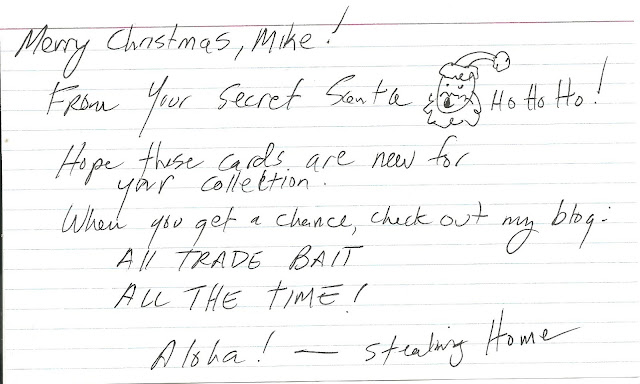 Merry Christmas, Mike!
From Your Secret Santa Ho Ho Ho!
Hope these cards are new for
your collection.
When you get a chance, check out my blog:
All TRADE BAIT
ALL THE TIME!
Aloha! — Stealing Home